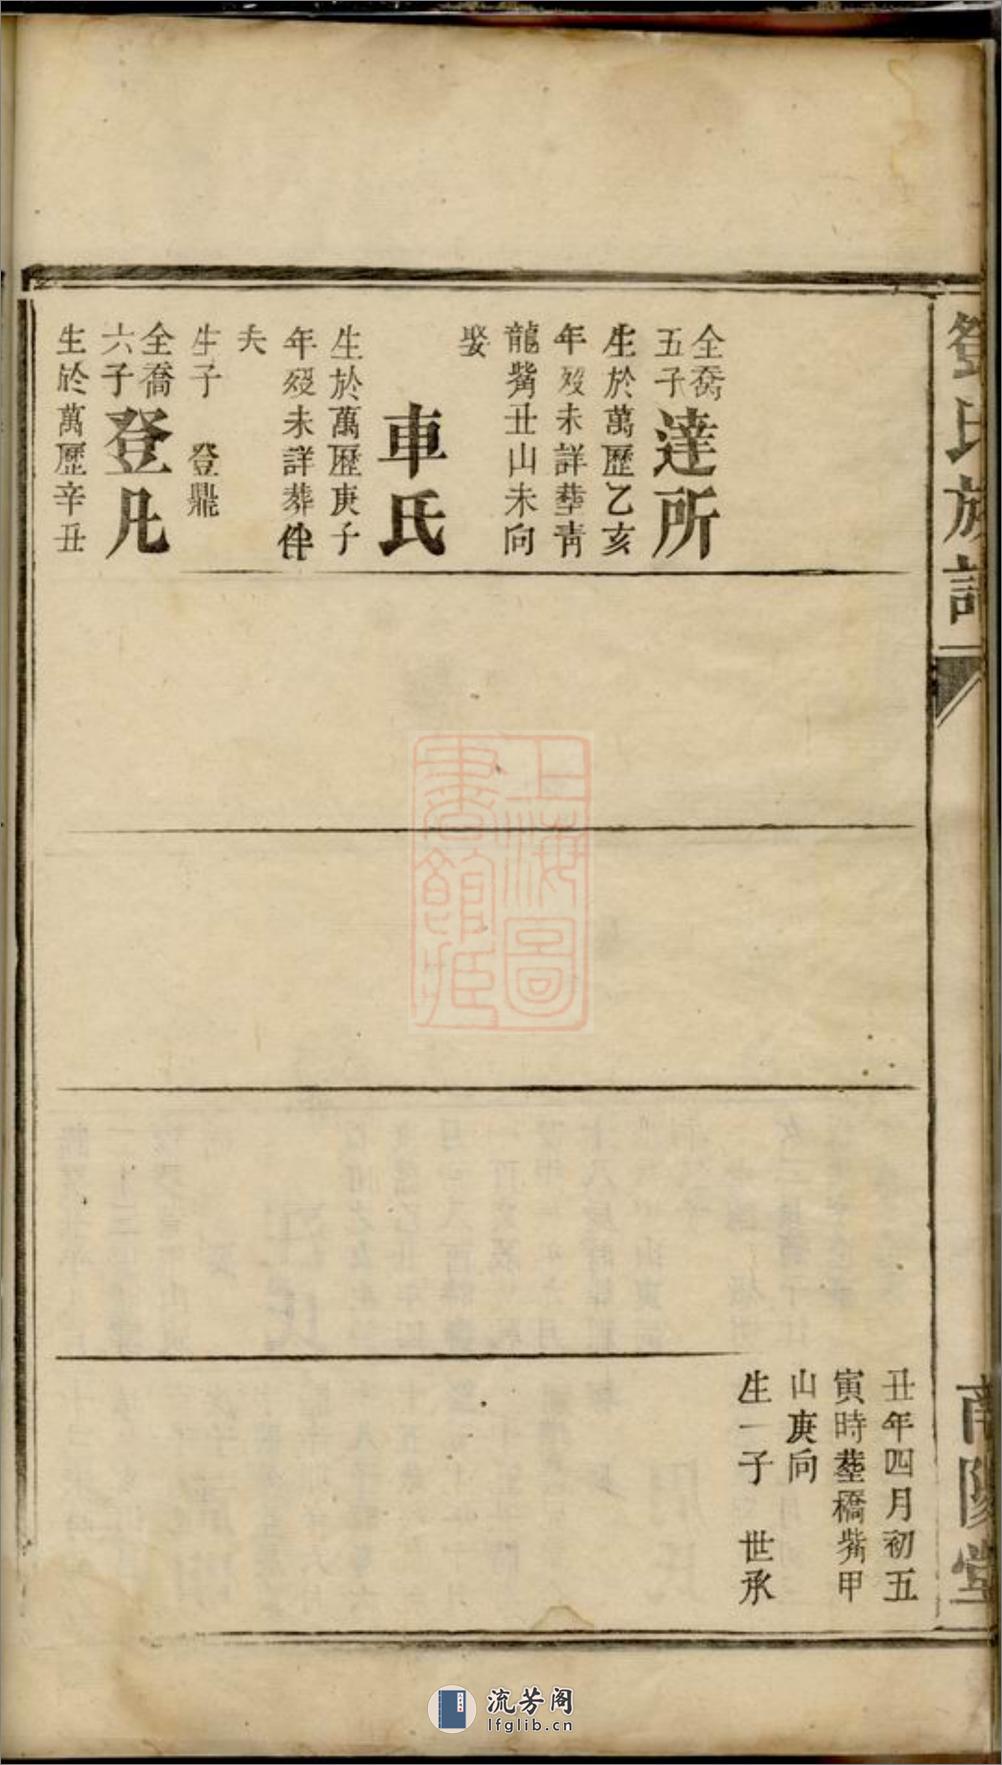 鄧氏族譜
南陽堂
全喬五子
達所
生於萬歷乙亥
年歿未詳塟青
龍嘴丑山未向
娶
車氏
生於萬歷庚子
年歿未詳葬伴
夫
生子 登鼎
全喬六子
登凡
生於萬歷辛丑
丑年四月初五
寅時塟橋嘴甲
山庚向
生一子 世承
上海圖
書館藏
流芳阁
lfglib.cn